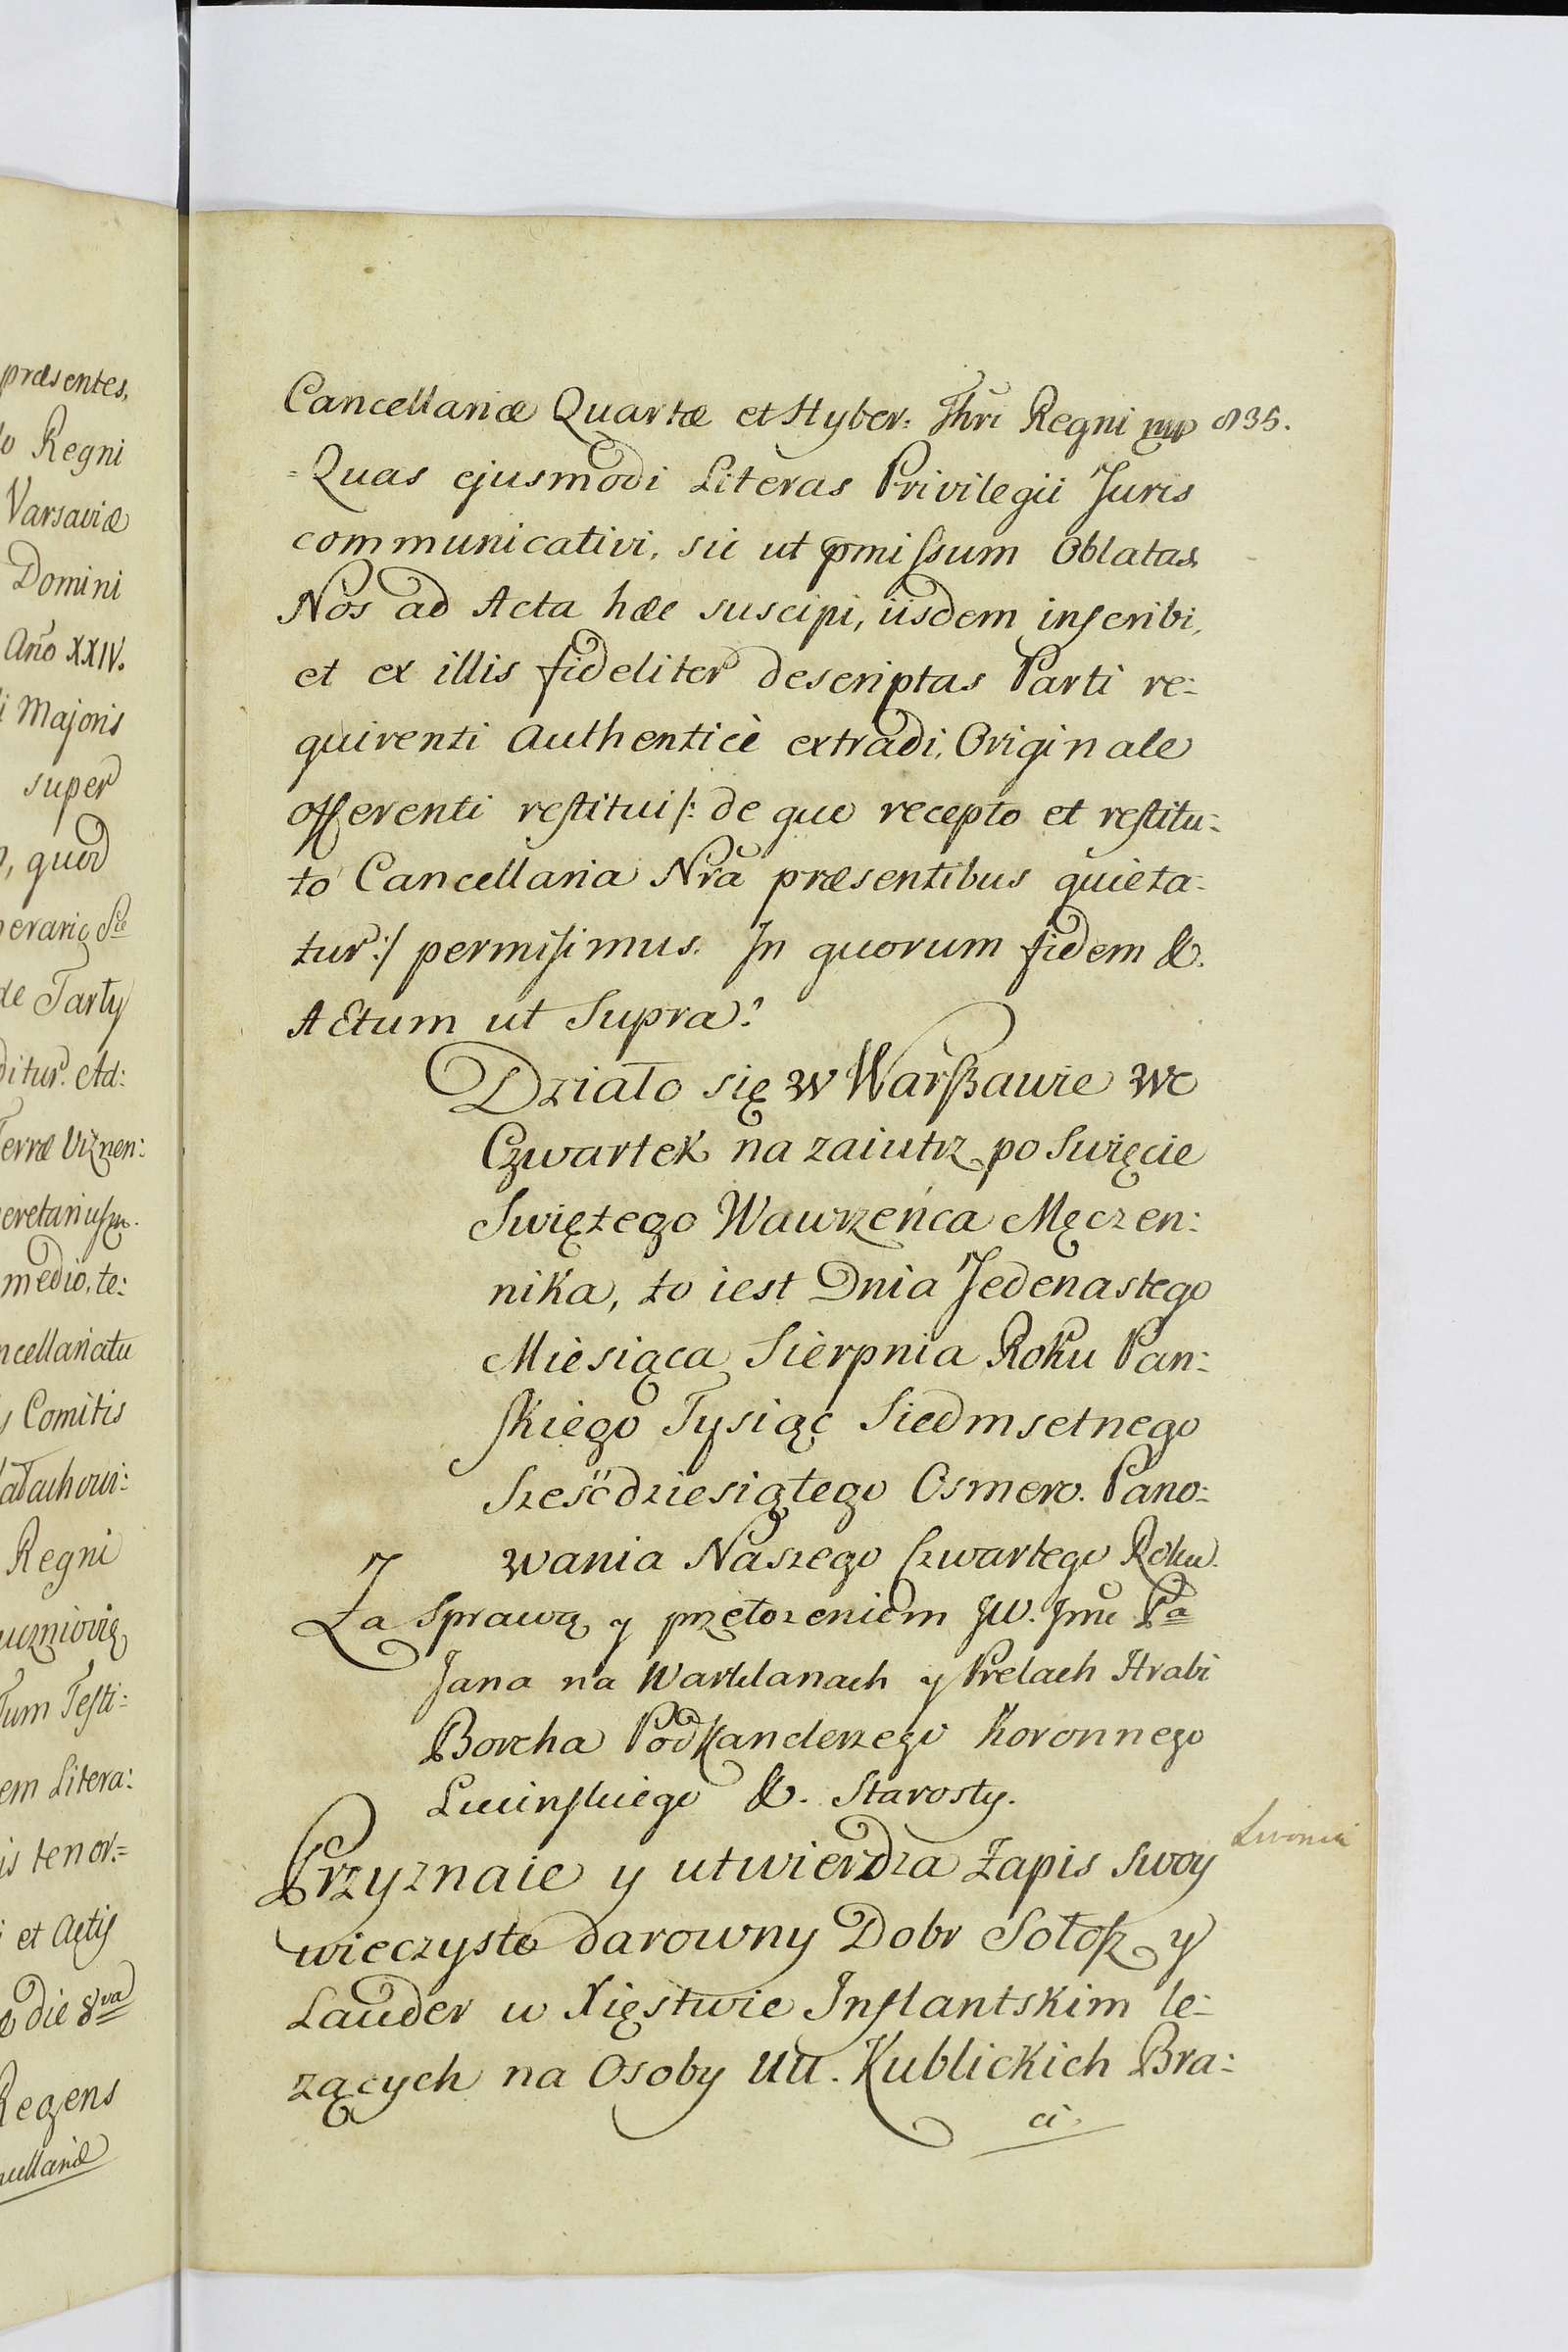 præsentes,
Regni
Varsaviæ
Domini
Año XXIV.
Majoris
super
quod
de Tarty
ditur. Ad:
Terræ Viznen:
medio, te:
ncellariatu
Comitis
Regni
Tum Testi:
em Litera:
is tenor:=
et Actis
die 8va
Regens
Cancellariæ Quartæ et Hyber: Thri Regni mp 835.
=Quas ejusmodi Literas Privilegii Juris
communicativi, sic ut pmissum Oblatas
Nos ad Acta hæc suscipi, iisdem inscribi,
et ex illis fideliter descriptas Parti re:
quirenti Authenticè extradi, Originale
offerenti restitui /: de quo recepto et restitu:
to Cancellaria Nra præsentibus quieta:
tur :/ permisimus. In quorum fidem &.
Actum ut Supra.
Działo się w Warszawie we
Czwartek na zaiutrz po Swięcie
Swiętego Wawrzeńca Męczen:
nika, to iest Dnia Jedenastego
Miesiąca Sierpnia Roku Pan:
skiego Tysiąc Siedmsetnego
Sześćdziesiątego Osmero. Pano:
wania Naszego Czwartego Roku.
Za Sprawą y przełozeniem JW. Jmc Pa
Jana na Warklanach y Prelach Hrabi
Borcha Podkanclerzego Koronnego
Lucinskiego &. Starosty.
Przyznaie y utwierdza Zapis swoy Livonia
wieczysto darowny Dobr Sołosz y
Lauder w Xięstwie Inflantskim le:
zących na Osoby UU. Kublickich Bra:
ci